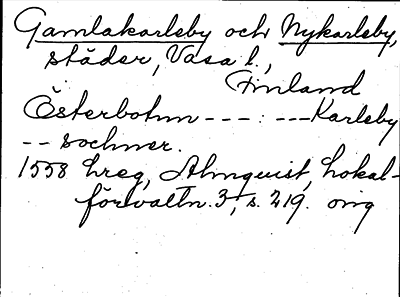 Gamlakarleby och Nykarleby,
städer, Vasa l.,
Finland
Österbotnn ---:---Karleby
-- sochner.
1558 hreg, Almquist, Lokal-
förvaltn. 3, s. 219. orig